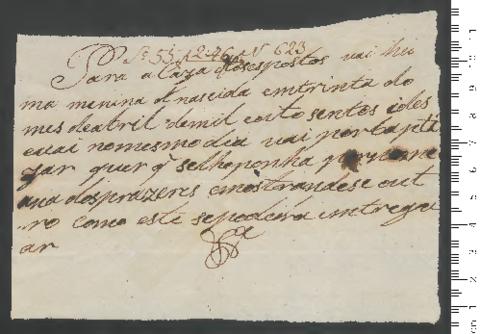 Pª 55. f. 246. Nº 623
Para a Caza dos espostos vai hu
ma menina nascida em trinta do
mes de abril de mil eoito sentos e des
e vai no mesmo dia vai por baptí
zar quer q̃ se lhe ponha por nome
ana dos prazeres e mostrandose out
ro como este se poderá emtregu
ar